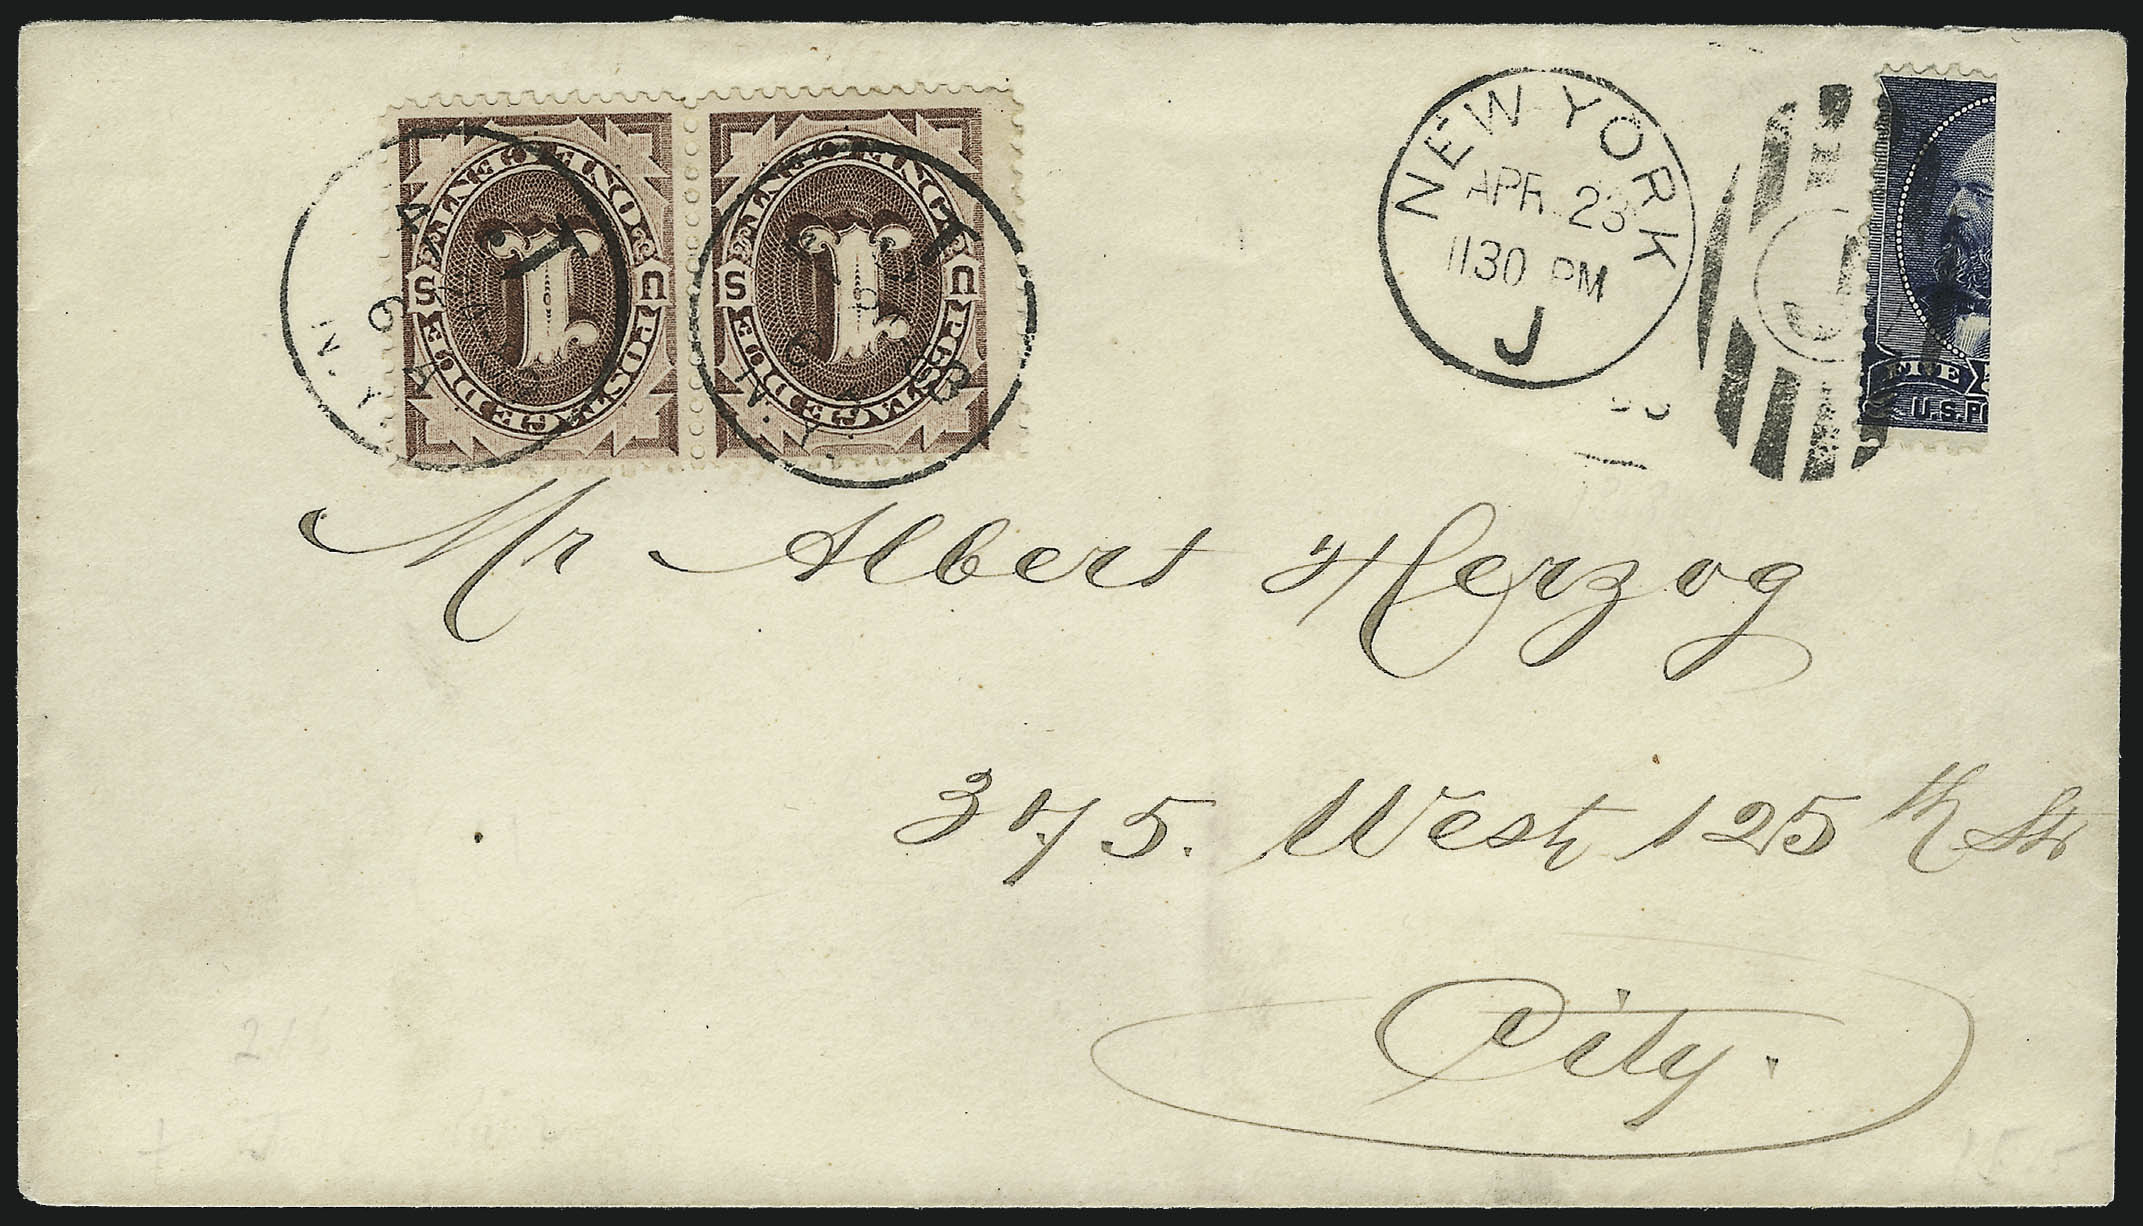 ONE CENT
U S
POSTAGE DUE
1
ONE CENT
U S
POSTAGE DUE
1
NEW YORK
APR 23
1130 PM
J
J
FIVE
U.S. P
Mr Albert Herzog
375. West 125th St
City.